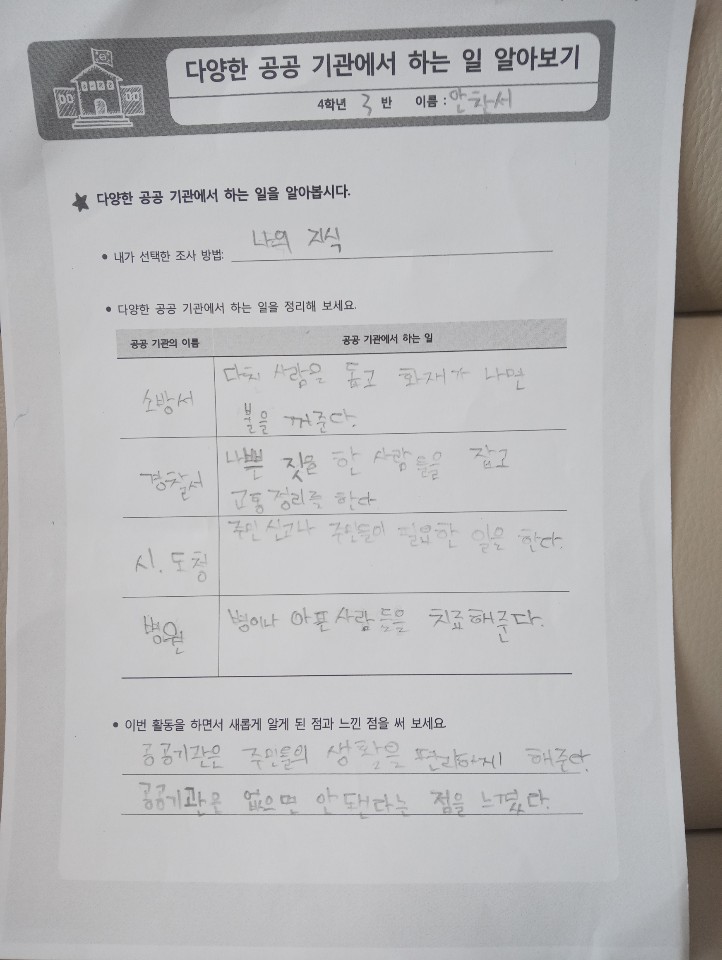 다양한 공공 기관에서 하는 일 알아보기
4학년 3 반 이름 : 안찬서
다양한 공공 기관에서 하는 일을 알아봅시다.
• 내가 선택한 조사 방법: 나의 지식
• 다양한 공공 기관에서 하는 일을 정리해 보세요.
공공 기관의 이름 공공 기관에서 하는 일
소방서
다친 사람을 돕고 화재가 나면
불을 꺼준다.
경찰서
나쁜 짓을 한 사람들을 잡고
교통정리를 한다
시.도청
주민신고나 주민들이 필요한 일을 한다.
병원
병이나 아픈사람들을 치료해준다.
• 이번 활동을 하면서 새롭게 알게 된 점과 느낀 점을 써 보세요
공공기관은 주민들의 생활을 편리하게 해준다.
공공기관은 없으면 안됀다는 점을 느꼈다.